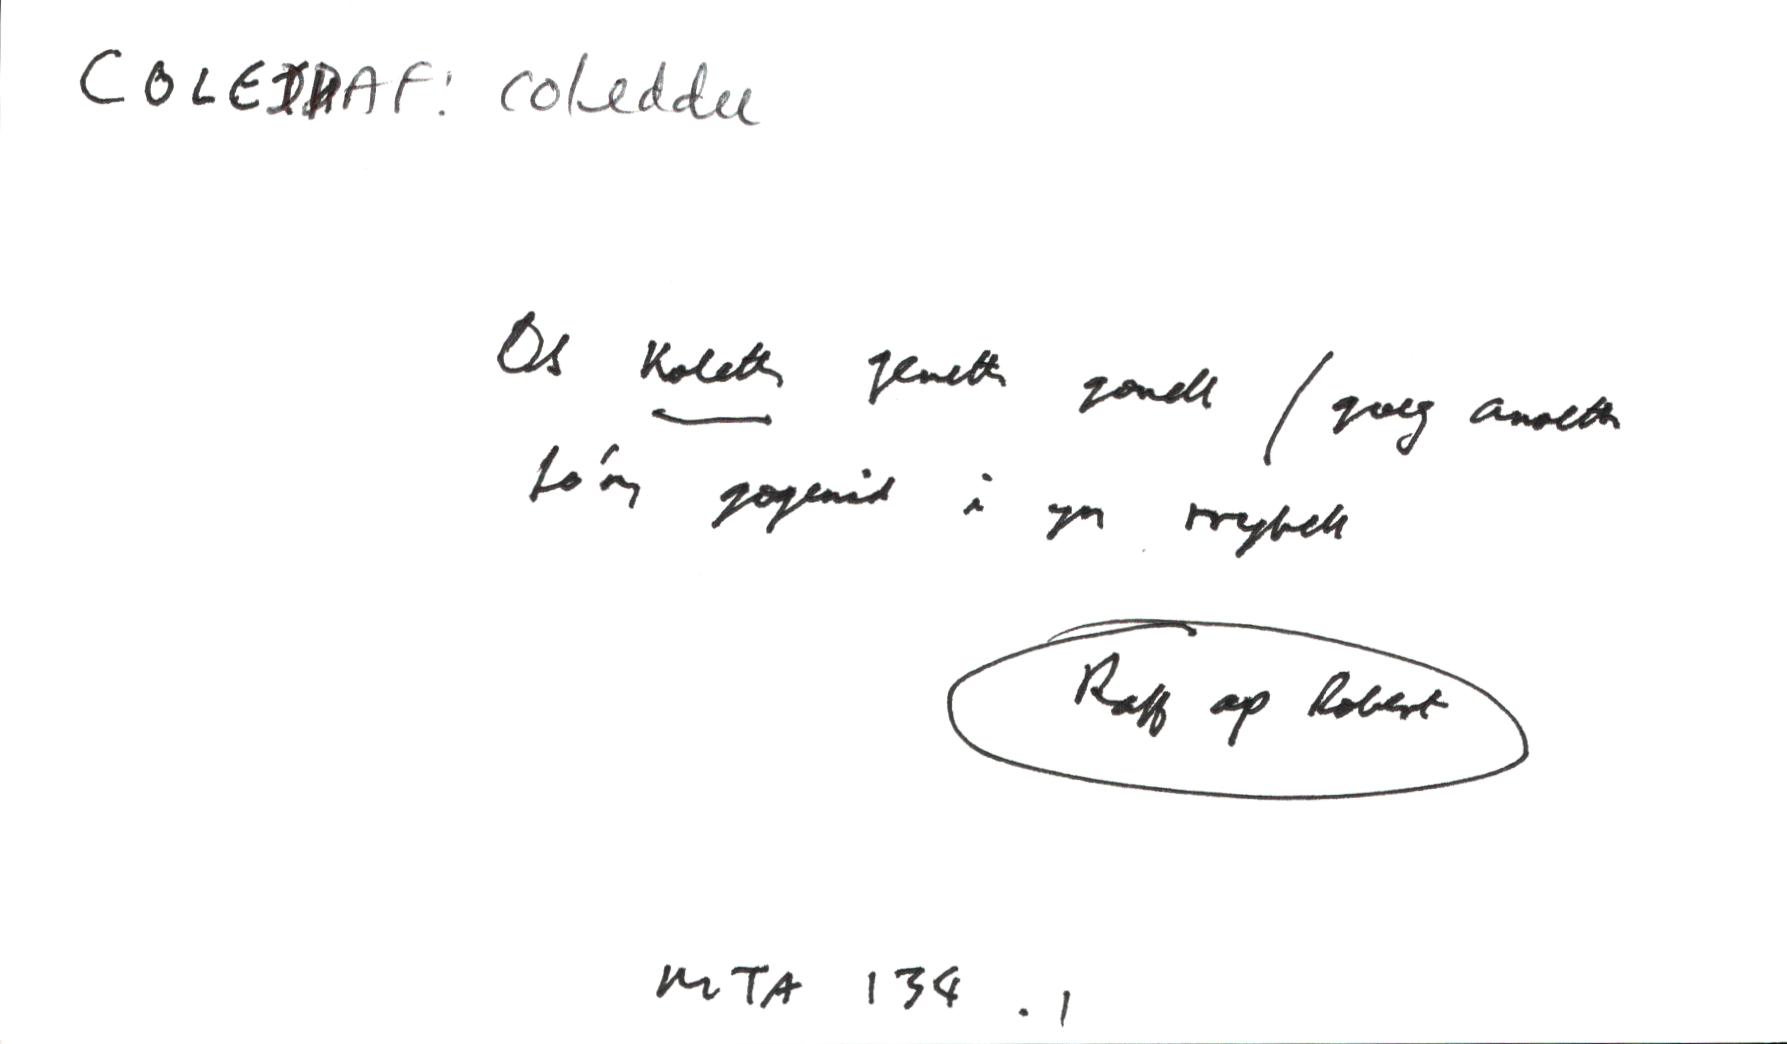 COLEDDAF: coleddu
Os koleth geneth gonell / goeg anoeth
to'n gogenid i yn rrybell
Raff ap Robert
MTA 134.1